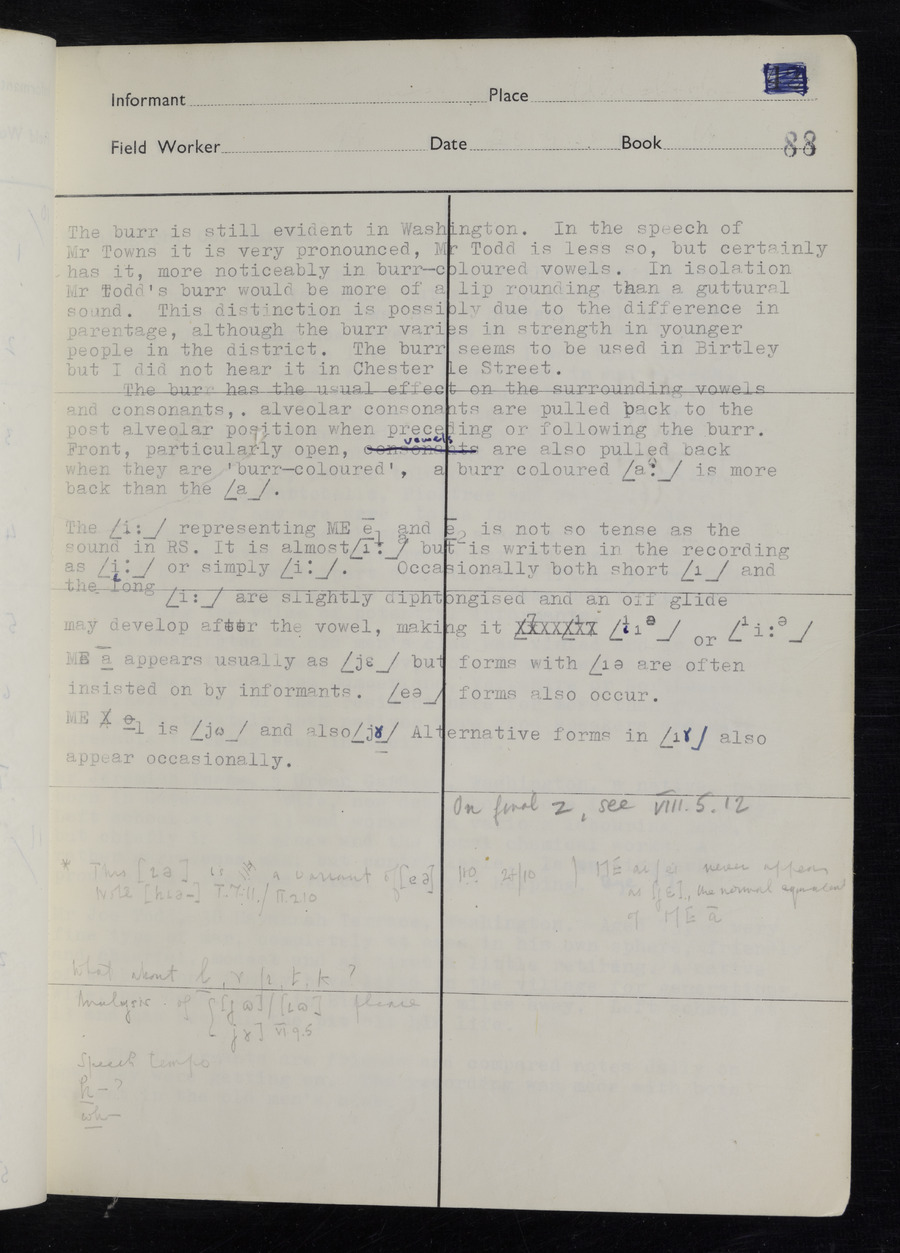 Informant Place
Field Worker Date Book 88
The burr is still evident in Washington. In the speech of
Mr Towns it is very pronounced, Mr Todd is less so, but certainly
has it, more noticeably in burr-coloured vowels. In isolation
Mr Todd's burr would be more of a lip rounding than a guttural
sound. This distinction is possibly due to the difference in
parentage, although the burr varies in strength in younger
people in the district. The burr seems to be used in Birtley
but I did not hear it in Chester le Street.
The burr has the usual effect on the surrounding vowels
and consonants,. alveolar consonants are pulled back to the
post alveolar position when preceding or following the burr.
Front, particularly open, vowels are also pulled back
when they are 'burr-coloured', a burr coloured [a:] is more
back than the [a].
The [i:] representing ME ē1 and ē2 is not so tense as the
sound in RS. It is almost [ɪ:] but is written in the recording
as [i:] or simply [i:]. Occasionally both short [ɪ] and
the long [i:] are slightly diphtongised and an off glide
may develop after the vowel, making it [ɪɪᵊ] or [ɪi:ᵊ]
ME ā appears usually as [jɛ] but forms with [ɪə are often
insisted on by informants. [eə] forms also occur.
ME ō1 is [jɷ] and also [jɤ] Alternative forms in [ɪɤ] also
appear occasionally.
On final z, see VIII.5.12
* This [ɪə] is a variant of [eə]
Note
ME never appears
as [jɛ], the normal equivalent
of ME ā
What about l, r p, t, k ?
Analysis of [jɷ]/[ɪɷ] please
jɤ] VI.9.5
Speech tempo
h- ?
wh-